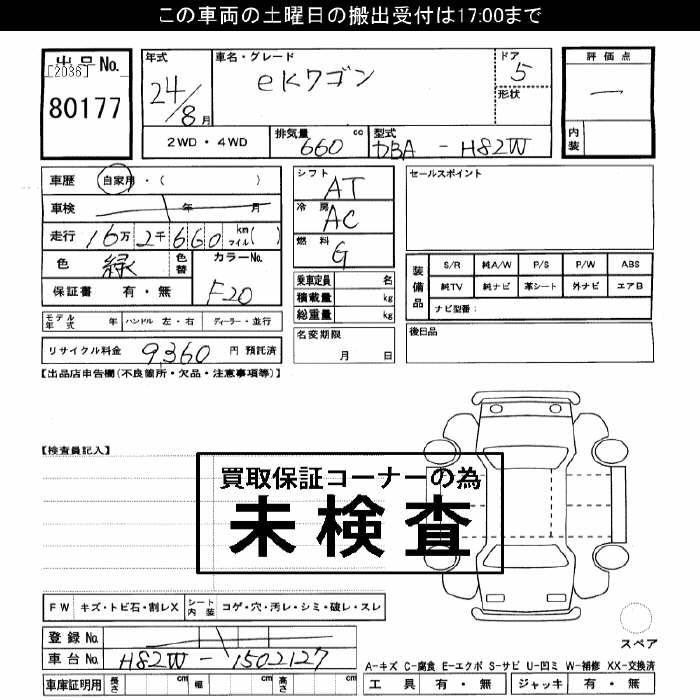 この車両の土曜日の搬出受付は17:00まで
出品No.
[2036]
80177
年式
24/8月
車名・グレード
eKワゴン
ドア
5
形状
評価点
—
内装
2WD・4WD
排気量
660 cc
型式
DBA - H82W
車歴 自家用・( )
車検 年 月
走行 16万2千660 km マイル( )
色 緑 色替
カラーNo.
F20
保証書 有・無
モデル年式 年 ハンドル 左・右 ディーラー・並行
リサイクル料金 9360 円 預託済
シフト
AT
冷房
AC
燃料
G
乗車定員 名
積載量 kg
総重量 kg
名変期限
月 日
セールスポイント
装備品
S/R 純A/W P/S P/W ABS
純TV 純ナビ 革シート 外ナビ エアB
ナビ型番:
後日品
【出品店申告欄(不良箇所・欠品・注意事項等)】
【検査員記入】
買取保証コーナーの為
未検査
FW キズ・トビ石・割レX シート内装 コゲ・穴・汚レ・シミ・破レ・スレ
登録No.
車台No. H82W - 1502127
車庫証明用 長さ cm 幅 cm 高さ cm
スペア
A-キズ C-腐食 E-エクボ S-サビ U-凹ミ W-補修 XX-交換済
工具 有・無 ジャッキ 有・無